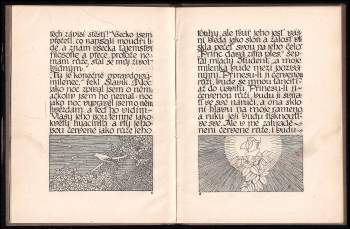 těch závisí štěstí! Všecko jsem
přečetl, co napsali moudří li-
dé, a znám všecka tajemství
filosofie a přec, protože ne-
mám růže, stal se můj život
bídným."
„Tu je konečně opravdový
milenec," řekl Slavík. „Noc
jako noc zpíval jsem o něm,
ačkoliv jsem ho neznal; noc
jako noc vyprávěl jsem o něm
hvězdám, a teď ho vidím.
Vlasy jeho jsou temné jako
květ hyacintu a rty jeho
jsou červené jako růže jeho
touhy; ale tvář jeho jest váš-
ní bledá jako slon a žalost vti-
skla pečeť svou na jeho čelo."
„Princ dává zítra ples," šep-
tal mladý Student, „a moje
milenka bude mezi pozvá-
nými. Přinesu-li jí červenou
růži, bude se mnou tančit
až do úsvitu. Přinesu-li jí
červenou růži, budu ji svírat
ve své náruči, a ona sklo-
ní hlavu na moje rameno
a ruku její budu tisknouti
ve své. Ale v mé zahradě
není červené růže, i budu